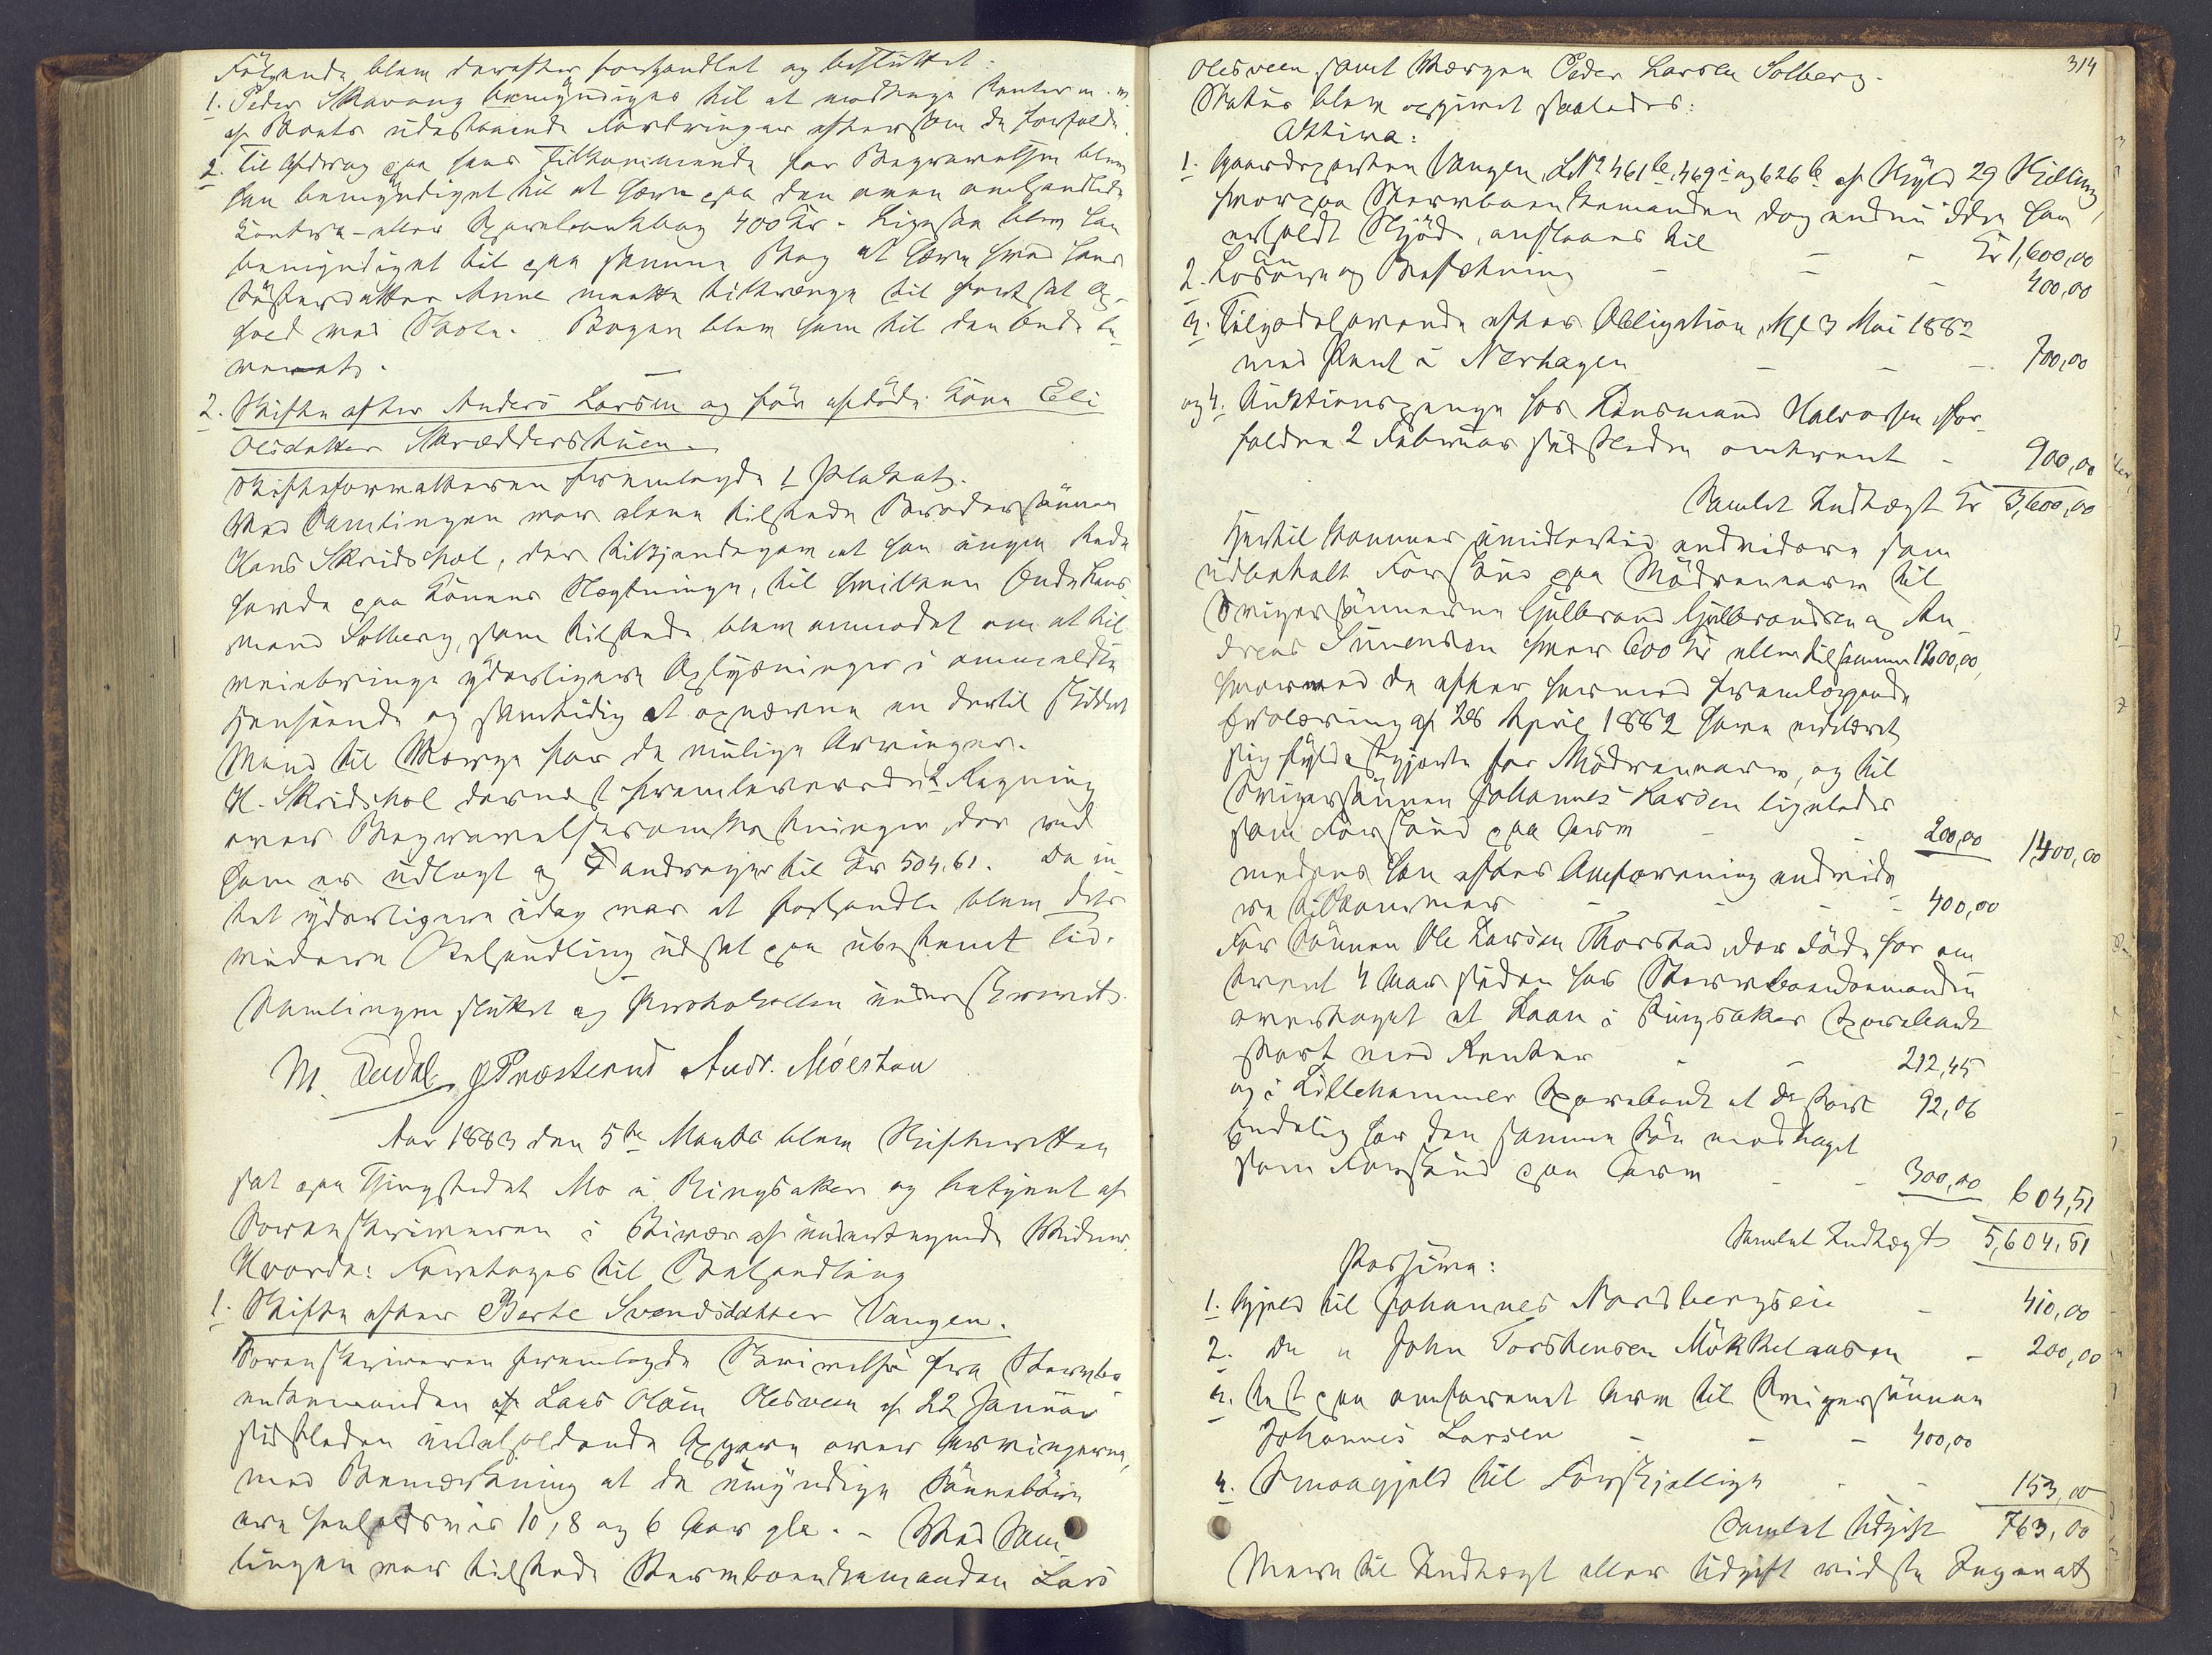 Følgende blev derefter forhandlet og besluttet:
1. Peder Skavang bemyndiges til at modtage Renter m. m.
af Boets udestaaende Fordringer eftersom de forfalde.
2. Til Afdrag paa hans Tilkommende for Begravelsen blev
han bemyndiget til at hæve paa den oven omhandlede
Kontra- eller Sparebankbog 400 Kr. Ligesaa blev han
bemyndiget til paa samme Bog at hæve hvad hans
Søsterdatter Anne maatte tiltrænge til fortsat Op-
hold ved Skole. Bogen blev ham til den Ende le-
veret.
2. Skifte efter Anders Larsen og før afdøde Kone Eli
Olsdatter Skræddershuen.
Skifteforvalteren fremlagde 1 Plakat.
Ved Samlingen var alene tilstede Brodersønnen
Hans Skridshol, der tilkjendegav at han ingen Rede
havde paa Konens Slægtninge, til hvilken Ende Lens-
mand Solberg, som tilstede, blev anmodet om at til-
veiebringe yderligere Oplysninger i anmeldte
Henseende og samtidig at opnævne en dertil skikket
Mand til Værge for de mulige Arvinger.
H. Skridshol dernæst fremleverede 2 Regning
over Begravelsesomkostninger, der ved
ham er udlagt og andrager til Kr 504,61. Da in-
tet yderligere idag var at forhandle blev dets
videre Behandling udsat paa ubestemt Tid.
Samlingen sluttet og Protokollen underskrevet.
M. Dudal P Præsterud Andr. Moestau
Aar 1883 den 5te Marts blev Skifteretten
sat paa Thingstedet Mo i Ringsaker og betjent af
Sorenskriveren i Bivær af undertegnede Vidner.
Hvorda: Foretoges til Behandling
1. Skifte efter Berte Svendsdatter Vangen.
Sorenskriveren fremlagde Skrivelse fra Stervbo-
enkemanden Lars Olsen Olesveen af 22 Januar
sidstleden indeholdende Opgave over Arvingerne,
med Bemærkning at de umyndige Sønnebørn
ere henholdsvis 10, 8 og 6 Aar gle. - Ved Sam-
lingen var tilstede Stervboenkemanden Lars
314
Olesveen samt Værgen Peder Larsen Solberg.
Status blev opgivet saaledes:
Aktiva:
1. Gaardsparten Vangen, L.No 461b, 469i og 626b af Skyld 29 Skilling,
hvorpaa Stervboenkemanden dog endnu ikke har
erholdt Skjøde, ansloaes til - - - Kr 1,600,00
2. Løsøre og Besætning - - - 400,00
3. Tilgodehavende efter Obligation, af 3 Mai 1882
med Pant i Nerhagen - - - 700,00
og 4. Auktionspenge hos Lensmand Halvorsen, for-
faldne 2 Februar sidstleden omtrent - 900,00
Samlet Indtægt Kr 3,600,00
Hertil kommer imidlertid endvidere som
udbetalt Forskud paa Mødrenearv til
Svigersønnerne Gulbrand Gulbrandsen og An-
dreas Simensen hver 600 Kr eller tilsammen 1200,00,
hvormed de efter hermed fremlæggende
Erklæring af 26 April 1882 have erklæret
sig fyldestgjorte for Mødrenearv, og til
Svigersønnen Johannes Larsen ligeledes
som Forskud paa Arv - - 200,00 1,400,00
medens han efter Anførening endvide-
re tilkommer - - - - 400,00
For Sønnen Ole Larsen Thorstad der døde for om-
trent 4 Aar siden har Stervboenkemanden
overtaget et Laan i Ringsaker Sparebank
stort med Renter - - 212,45
og i Lillehammer Sparebank et do stort 92,06
Endelig har den samme Søn modtaget
som Forskud paa Arv - - 300,00 604,51
Samlet Indtægt 5,604,51
Passiva:
1. Gjæld til Johannes Nordbergseie - 410,00
2. do " John Torstensen Mökkelausen - 200,00
3. Rest paa anførenet Arv til Svigersønnen
Johannes Larsen - - - 400,00
4. Smaagjæld til Forskjellige - - 153,00
Samlet Udgift 763,00
Mere til Indtægt eller Udgift vidste Ingen at